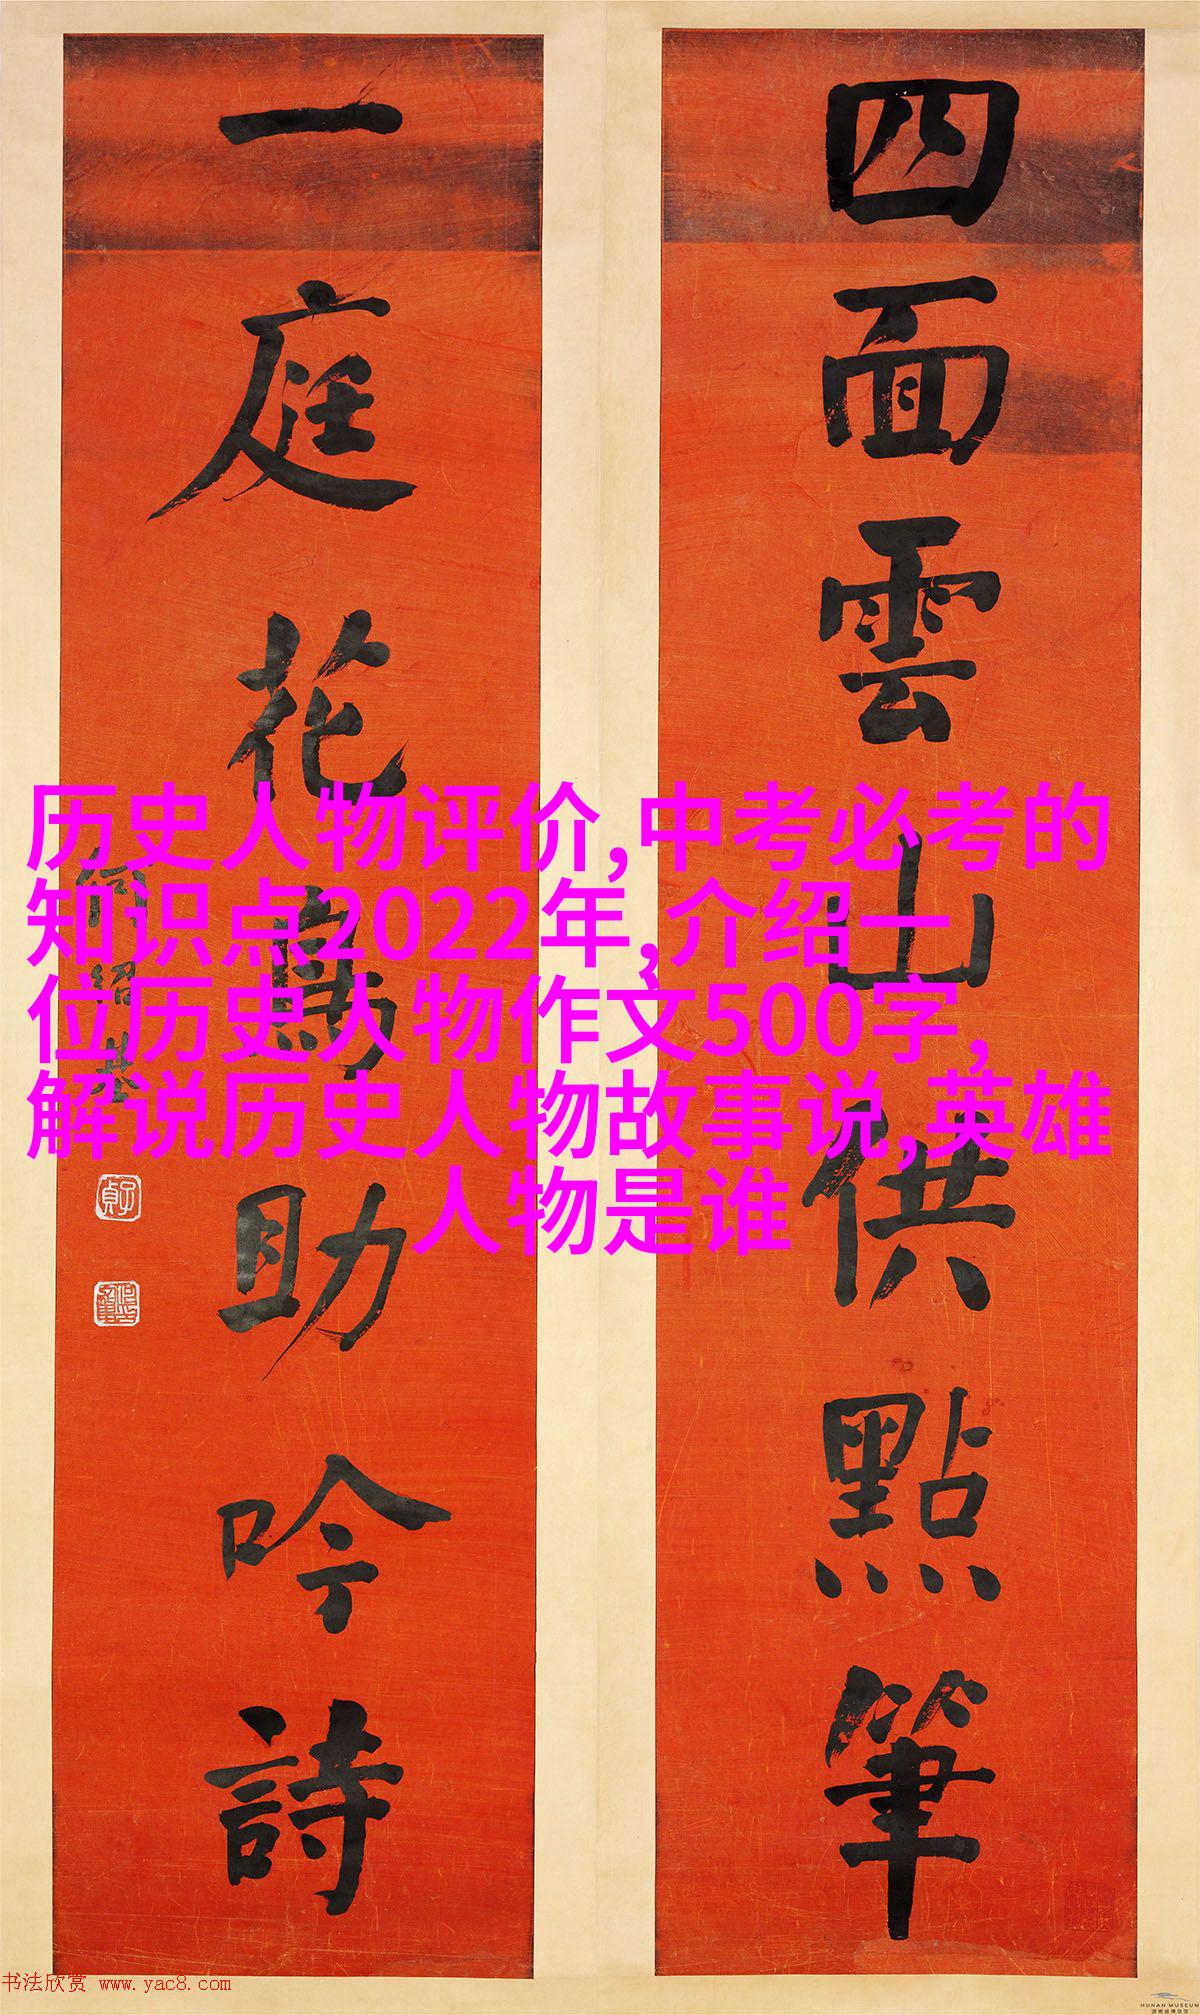 四面雲山供點筆
一庭花鳥助吟詩
何紹基
历史人物评价,中考必考的
知识点2022年,介绍一
位历史人物作文500字,
解说历史人物故事说,英雄
人物是谁
书法欣赏 www.yac8.com
HUNAN MUSEUM